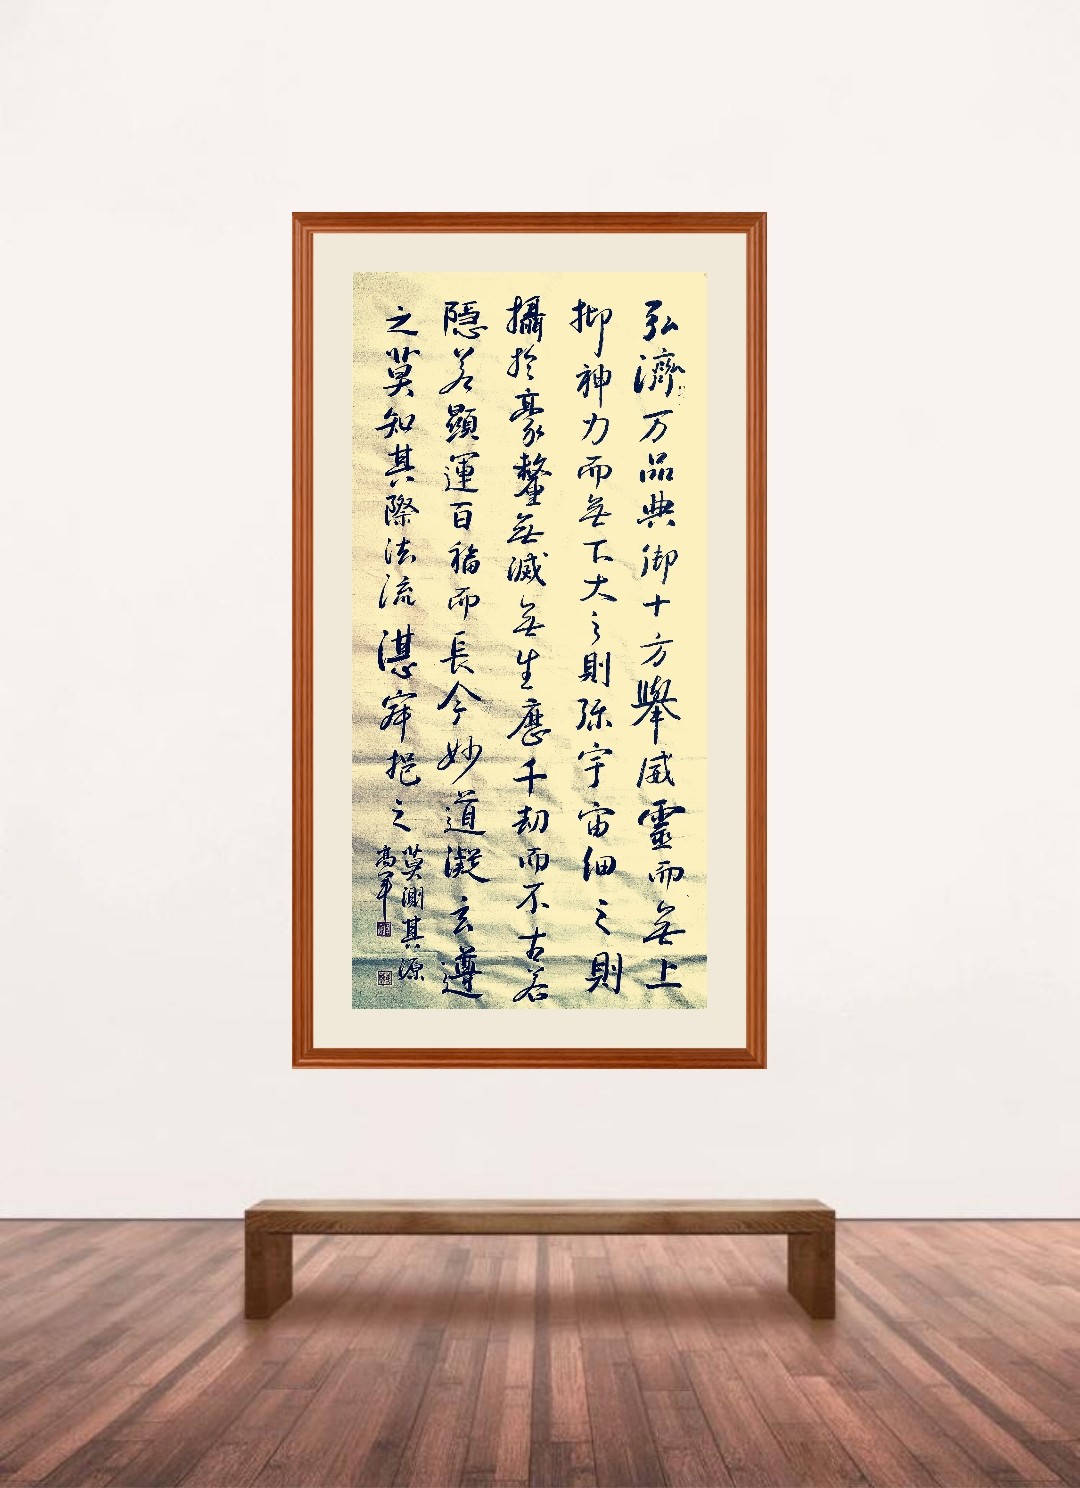 弘濟万品典御十方舉威靈而無上
抑神力而無下大之則弥宇宙細之則
攝於豪釐無滅無生歷千劫而不古若
隱若顯運百福而長今妙道凝玄遵
之莫知其際法流湛寂挹之
莫測其源
高军